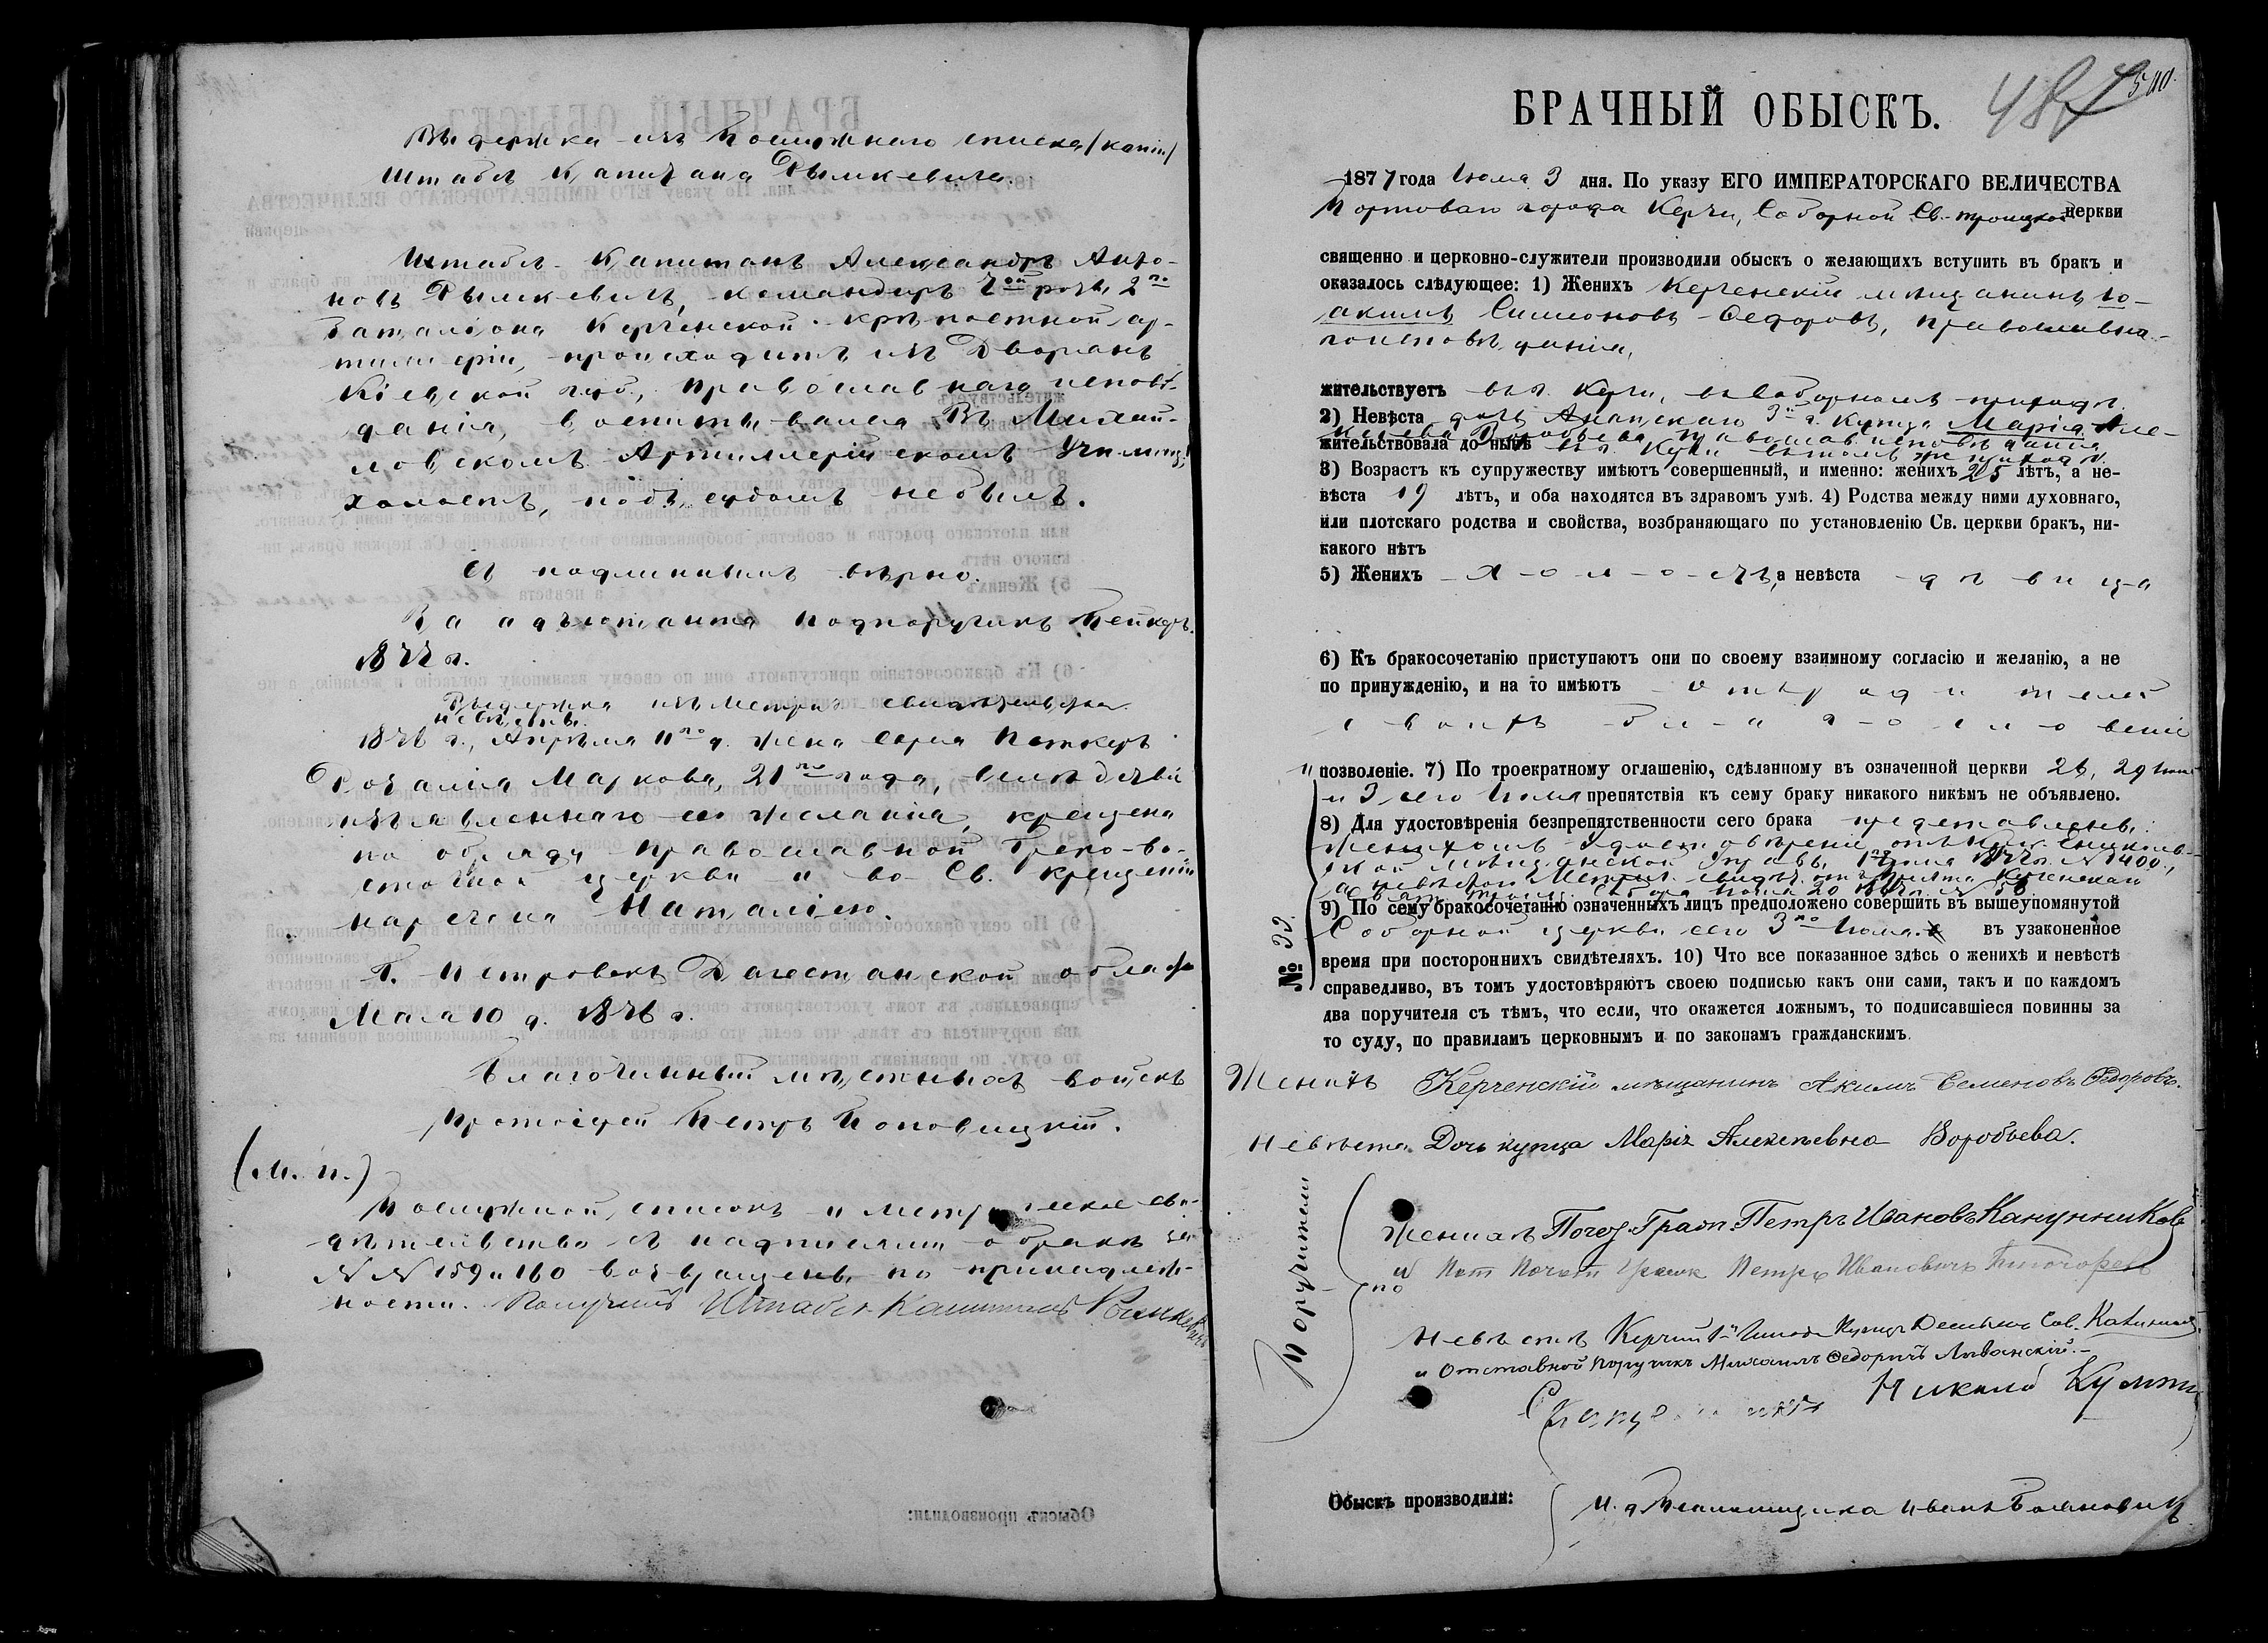 Выдержка изъ Послужнаго списка /копіи/
Штабсъ Капитана Рымкевича.
Штабсъ-Капитанъ Александръ Анто-
новъ Рымкевичъ, командиръ роты, 2го
баталіона Керченской крѣпостной ар-
тиллеріи, происходитъ изъ Дворянъ
Кіевской губ., православнаго исповѣ-
данія, воспитывался въ Михай-
ловскомъ Артиллерійскомъ Училищѣ,
холостъ, подъ судомъ не былъ.
Съ подлиннымъ вѣрно.
За адъютанта Подпоручикъ
1877 г.
Выдержка изъ Метрич. свидѣтельства
невѣсты.
1876 г., Апрѣля 11го д. жена
Розалія Маркова, 21го года, вслѣдствіе
изъявленнаго ею желанія, крещена
по обряду православной Греко-во-
сточной церкви и во Св. крещеніи
наречена Наталіею.
Г. Петровскъ Дагестанской области
Мая 10 д. 1876 г.
Благочинный мѣстныхъ войскъ
Протоіерей Петръ Поповицкій.
(М. П.)
Послужной списокъ и метрическое сви-
дѣтельство съ надписями о бракѣ за
№№ 159 и 160 возвращены по принадлеж-
ности. Получилъ Штабсъ-Капитанъ Рымкевичъ
БРАЧНЫЙ ОБЫСКЪ.
487
500.
1877 года Іюля 3 дня. По указу ЕГО ИМПЕРАТОРСКАГО ВЕЛИЧЕСТВА
Портоваго города Керчи, Соборной Св.-Троицкой церкви
священно и церковно-служители производили обыскъ о желающихъ вступить въ бракъ и
оказалось слѣдующее: 1) Женихъ Керченскій мѣщанинъ Іо-
акимъ Симеоновъ Ѳедоровъ, православна-
го исповѣданія,
жительствуетъ въ г. Керчи, въ Соборномъ приходѣ.
2) Невѣста дочь Анапскаго 3й г. купца Марія Але-
ксѣева Воробьева, православ. исповѣданія
жительствовала до нынѣ въ г. Керчи въ томъ же приходѣ.
3) Возрастъ къ супружеству имѣютъ совершенный, и именно: женихъ 25 лѣтъ, а не-
вѣста 19 лѣтъ, и оба находятся въ здравомъ умѣ. 4) Родства между ними духовнаго,
или плотскаго родства и свойства, возбраняющаго по установленію Св. церкви бракъ, ни-
какого нѣтъ
5) Женихъ холостъ, а невѣста дѣвица
6) Къ бракосочетанію приступаютъ они по своему взаимному согласію и желанію, а не
по принужденію, и на то имѣютъ отъ родителей
своихъ благословеніе
и позволеніе. 7) По троекратному оглашенію, сдѣланному въ означенной церкви 26, 29 Іюня
и 3 сего Іюля препятствія къ сему браку никакого никѣмъ не объявлено.
8) Для удостовѣренія безпрепятственности сего брака представлены:
женихомъ удостовѣреніе отъ Керчь-Еникольс-
кой Мѣщанской Управы 1го Іюля 1877 г. № 1400,
а невѣстою Метрич. свидѣт. отъ причта Керченскаго
Свят. Троиц. Собора Іюня 20 1877 г. № 56.
9) По сему бракосочетанію означенныхъ лицъ предположено совершить въ вышеупомянутой
Соборной церкви сего 3го Іюля въ узаконенное
время при постороннихъ свидѣтеляхъ. 10) Что все показанное здѣсь о женихѣ и невѣстѣ
справедливо, въ томъ удостовѣряютъ своею подписью какъ они сами, такъ и по каждомъ
два поручителя съ тѣмъ, что если, что окажется ложнымъ, то подписавшіеся повинны за
то суду, по правиламъ церковнымъ и по законамъ гражданскимъ.
№ 33.
Женихъ Керченскій мѣщанинъ Акимъ Семеновъ Ѳедоровъ.
Невѣста Дочь купца Марія Алексѣевна Воробьева.
Поручители
по
Женихѣ Почет. Гражд. Петръ Ивановъ Канунниковъ
и Пот. Почет. Гражд. Петръ Ивановичъ
Невѣстѣ купецъ
и Отставной Поручикъ Михаилъ Ѳедоровичъ
Никола
Обыскъ производили:
И. д. Псаломщика Иванъ